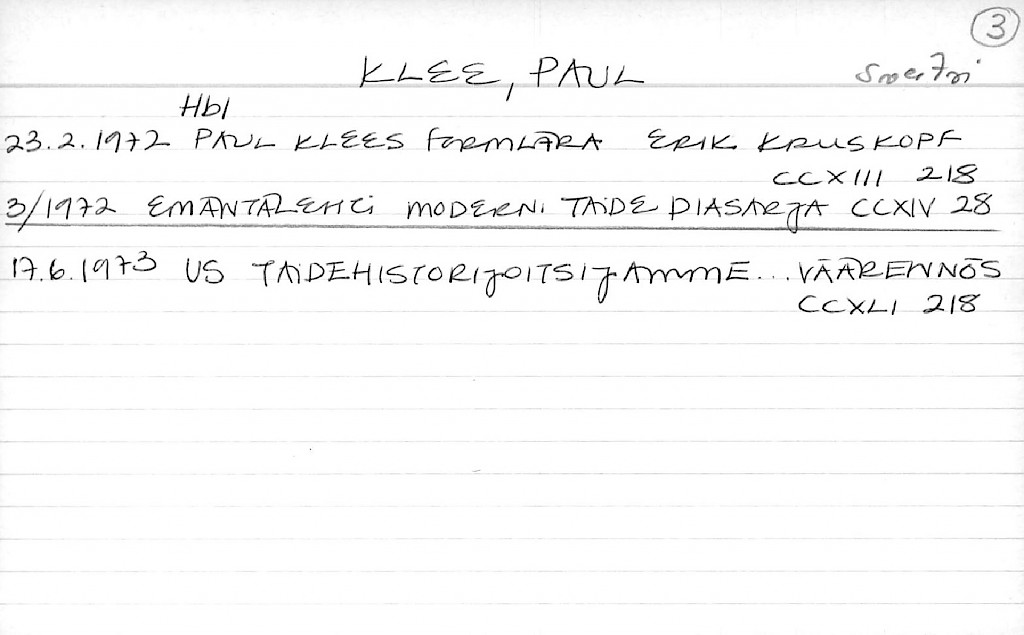 3
KLEE, PAUL
Hbl
23.2.1972 PAUL KLEES FORMLÄRA ERIK KRUSKOPF
CCXIII 218
3/1972 EMÄNTÄLEHTI MODERNI TAIDE DIASARJA CCXIV 28
17.6.1973 US TAIDEHISTORIJOITSIJAMME... VÄÄRENNÖS
CCXLI 218